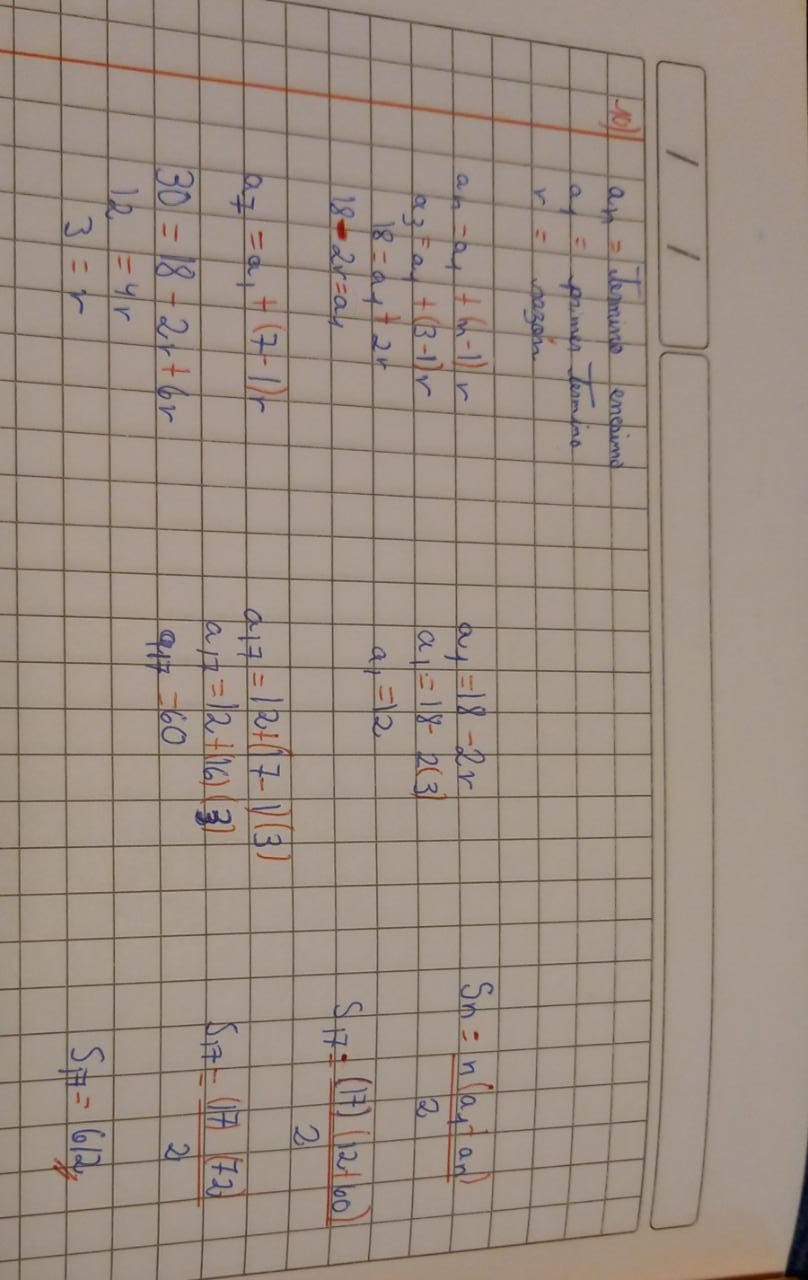 10)
an = Termino enesimo
a1 = primer Termino
r = razón
an = a1 + (n-1) r
a3 = a1 + (3-1) r
18 = a1 + 2r
18 - 2r = a1
a7 = a1 + (7-1) r
30 = 18 - 2r + 6r
12 = 4r
3 = r
a1 = 18 - 2r
a1 = 18 - 2(3)
a1 = 12
a17 = 12 + (17-1)(3)
a17 = 12 + (16)(3)
a17 = 60
Sn = n(a1 + an)
2
S17 = (17)(12+60)
2
S17 = (17)(72)
2
S17 = 612